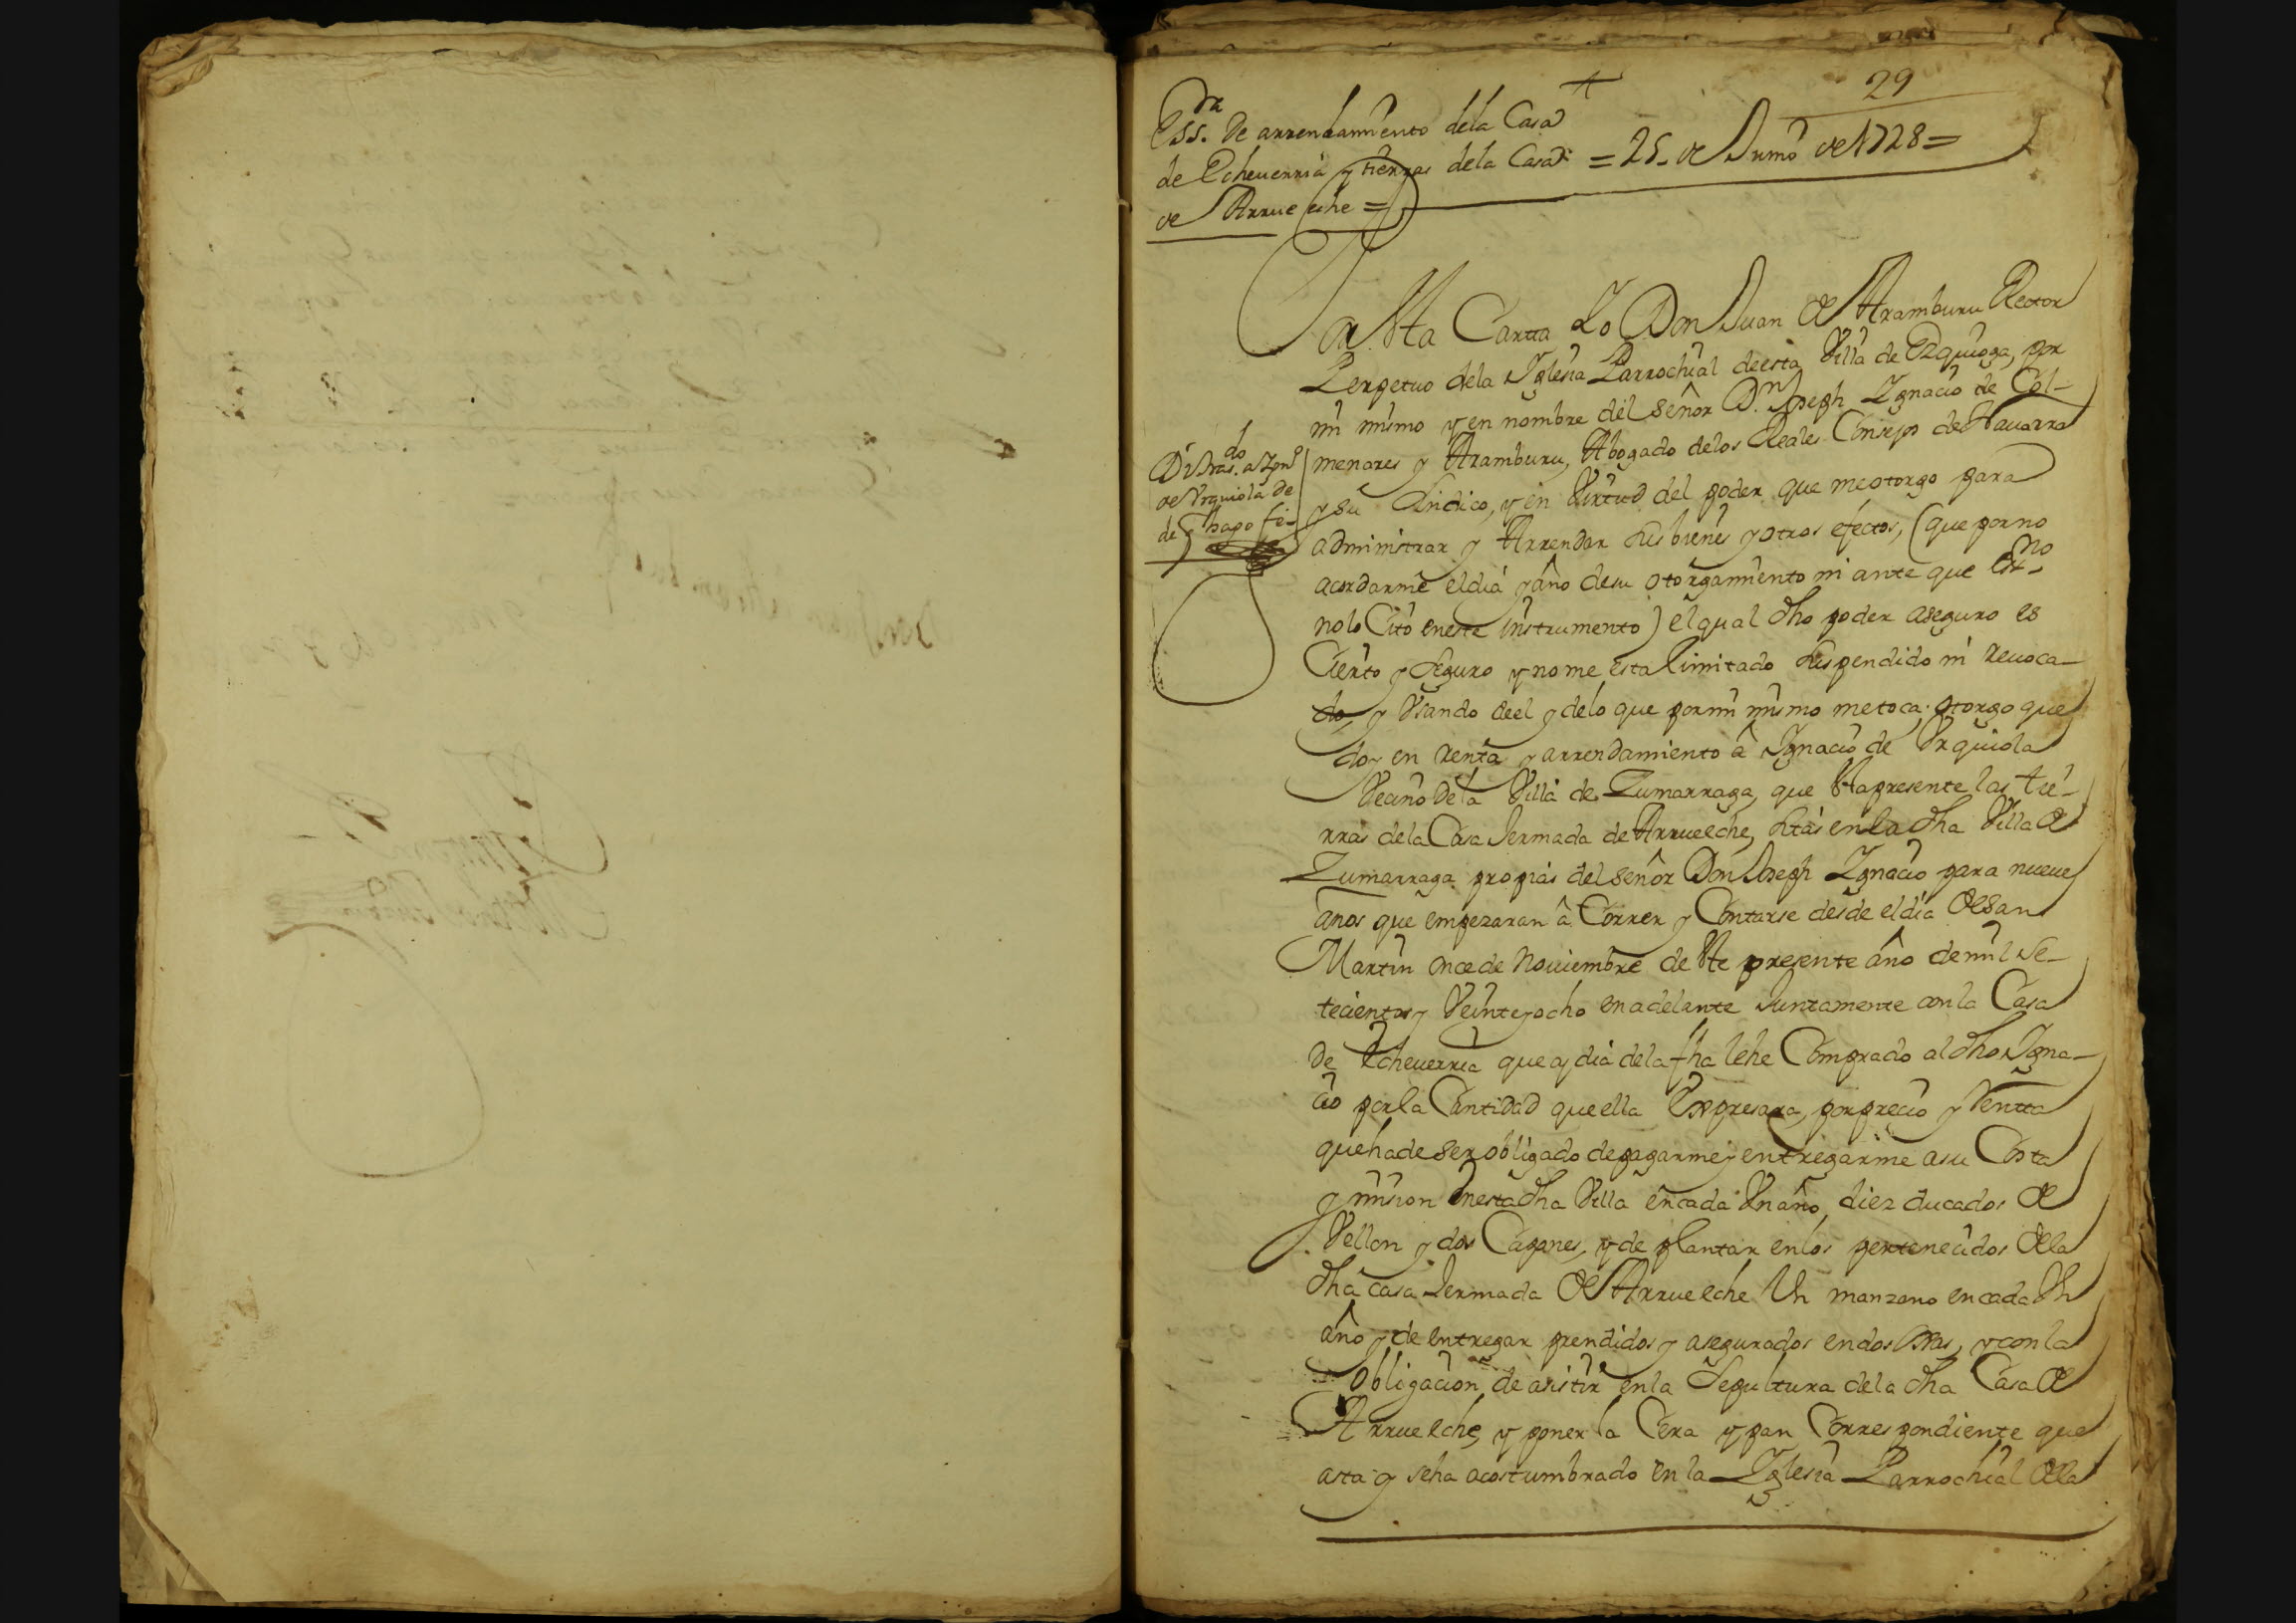 29
Ess.ra de arrendamiento dela Casa
de Echeuerria y tierras dela Casa
de Arrueche =
= 25 de Junio de 1728 =
Por esta Cartta Yo Don Juan de Aramburu Rector
Perpetuo dela Iglesia Parrochial deesta Villa de Ezquioga, por
mi mismo y en nombre del señor D.n Joseph Ygnacio de Col-
menares y Aramburu, Abogado delos Reales Consejos de Nauarra
y su Sindico, y en Virtud del poder que meotorgo para
administrar y Arrendar sus bienes y otros efectos, (que por no
acordarme eldia y año desu otorgamiento ni ante que Ess.no
nolo Cito eneste instrumento) elqual dho poder aseguro es
Cierto y Seguro y no me esta limitado suspendido ni reuoca-
do, y Vsando deel y delo que pormi mismo metoca otorgo que
doy en renta y arrendamiento â Ignacio de Vrquiola
Vecino dela Villa de Zumarraga, que esta presente las tie-
rras dela Casa Iermada de Arrueche, sitas enla dha Villa de
Zumarraga propias del señor Don Joseph Ygnacio para nueue
años que empezaran â Correr y Contarse desde eldia de San
Martin once de Nouiembre deste presente año demil se-
tecientos y Veinte y ocho enadelante Juntamente con la Casa
de Echeuerria que oy dia dela fha lehe Comprado al dho Igna-
cio porla Cantidad que ella Expresara, por precio y Rentta
quehadeser obligado depagarme y entregarme asu Costa
y mision enesta dha Villa encada Vn año, diez ducados de
Vellon y dos Capones, y de plantar enlos pertenecidos dela
dha casa Iermada de Arrueche Vn manzano encada Vn
año y de entregar prendidos y asegurados endos ojas, y con la
Obligacion de asistir enla Sepultura dela dha Casa de
Arrueche, y poner la Cera y pan Correspondiente que
asta oy seha acostumbrado en la Iglesia Parrochial dela
de Vrquiola de